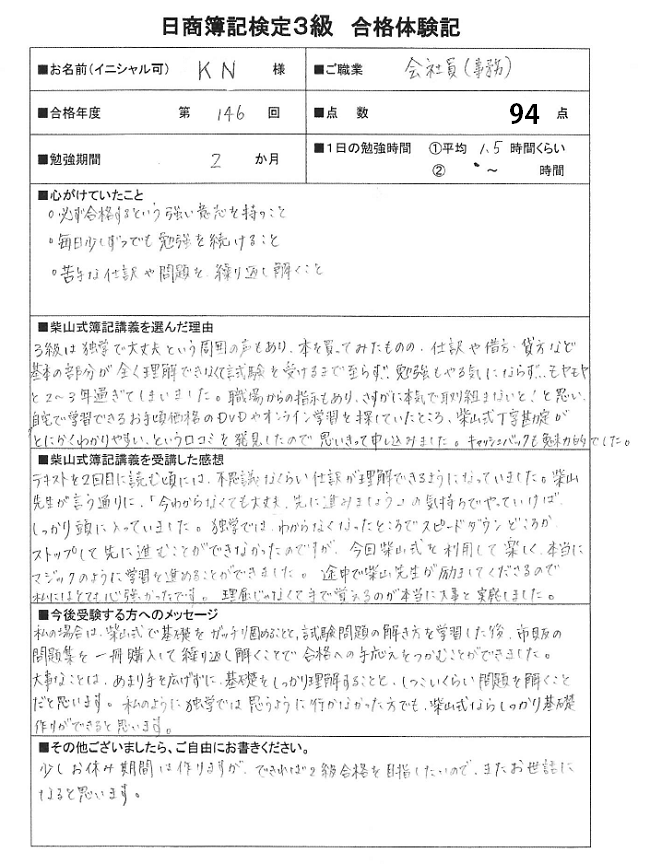 日商簿記検定3級 合格体験記
■お名前(イニシャル可) KN 様 ■ご職業 会社員(事務)
■合格年度 第 146 回 ■点数 94 点
■勉強期間 2 か月 ■1日の勉強時間 ①平均 1.5 時間くらい
② ~ 時間
■心がけていたこと
○必ず合格するという強い意志を持つこと
○毎日少しずつでも勉強を続けること
○苦手な仕訳や問題を繰り返し解くこと
■柴山式簿記講義を選んだ理由
3級は独学で大丈夫という周囲の声もあり、本を買ってみたものの、仕訳や借方・貸方など
基本の部分が全く理解できなくて試験を受けるまで至らず、勉強もやる気にならず…モヤモヤ
と2~3年過ぎてしまいました。職場からの指示もあり、さすがに本気で取り組まないと!と思い、
自宅で学習できるお手頃価格のDVDやオンライン学習を探していたところ、柴山式丁字勘定が
とにかくわかりやすい、という口コミを発見したので思いきって申し込みました。キャッシュバックも魅力的でした。
■柴山式簿記講義を受講した感想
テキストを2回目に読む頃には、不思議なくらい仕訳が理解できるようになっていました。柴山
先生が言う通りに、「今わからなくても大丈夫、先に進みましょう」の気持ちでやっていけば、
しっかり頭に入っていました。独学では、わからなくなったところでスピードダウンどころか、
ストップして先に進むことができなかったのですが、今回柴山式を利用して楽しく、本当に
マジックのように学習を進めることができました。途中で柴山先生が励ましてくださるので
私にはとても心強かったです。理屈じゃなくて手で覚えるのが本当に大事と実感しました。
■今後受験する方へのメッセージ
私の場合は、柴山式で基礎をガッチリ固めることと、試験問題の解き方を学習した後、市販の
問題集を一冊購入して繰り返し解くことで合格への手応えをつかむことができました。
大事なことは、あまり手を広げずに、基礎をしっかり理解することと、しつこいくらい問題を解くこと
だと思います。私のように独学では思うように行かなかった方でも、柴山式ならしっかり基礎
作りができると思います。
■その他ございましたら、ご自由にお書きください。
少しお休み期間は作りますが、できれば2級合格を目指したいので、またお世話に
なると思います。